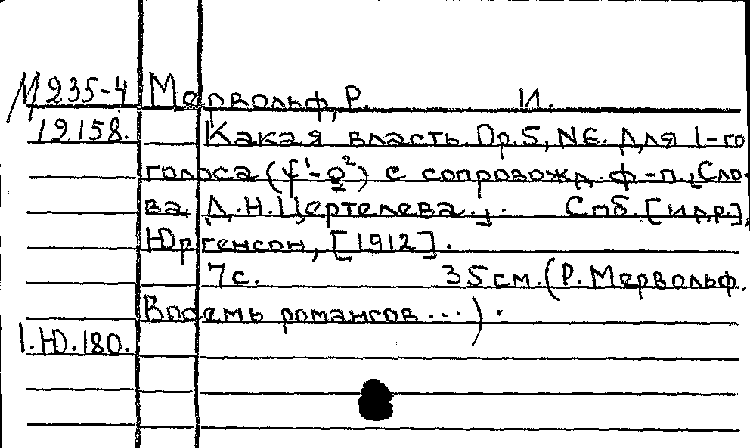 М235-4 Мервольф, Р. И.
19158. Какая власть. Ор.5, №6. Для 1-го
голоса (f¹-g²) с сопровожд. ф-п. [Сло-
ва Д.Н. Цертелева.]. Спб. [и др.],
Юргенсон, [1912].
7с. 35см. (Р. Мервольф.
Восемь романсов...).
I.Ю.180.